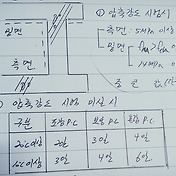 밑면
측면
① 압축강도 시험시
- 측면 : 5MPa 이상
- 밑면
14MPa 이상
압축강도 시험 미실시
구분 조강P.C 보통P.C
20℃이상 2일 3일 4일
10℃이상 3일 4일 6일